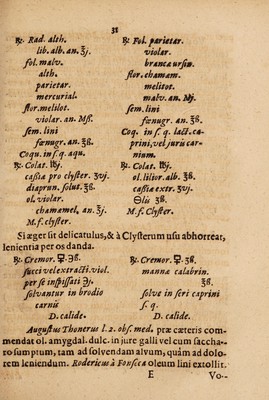 38
℞. Rad. alth.
lib. alb. an. ℥j.
fol. malv.
alth.
parietar.
mercurial.
flor. melilot.
violar. an. Mß.
sem. lini
fœnugr. an. ℥ß.
Coqu. in ſ. q. aqu.
℞. Colat. ℔j.
caßiæ pro clyſter. ʒvj.
diaprun. ſolut. ℥ß.
ol. violar.
chamæmel, an. ℥j.
M. f. clyſter.
℞. Fol. parietar.
violar.
branca urſin.
flor. chamæm.
melitot.
malv. an. Mj.
ſem. lini
fœnugr. an. ℥ß.
Coq. in ſ. q. lact. ca-
prini, vel juris car-
nium.
℞. Colat. ℔j.
ol. lilior. alb. ℥ß.
caßiæ extr. ʒvj.
Ꮎlis ʒß.
M. f. Clyſter.
Si æger ſit delicatulus, & à Clyſterum uſu abhorreat,
lenientia per os danda.
℞. Cremor. 🜿 ℈ß.
ſucci vel extracti viol.
per ſe inſpiſſati ʒj.
ſolvantur in brodio
carnis
D. calide.
℞. Cremor. 🜿. ʒß.
manna calabrin.
℥ß.
ſolve in ſeri caprini
ſ. q.
D. calide.
Auguſtus Thonerus l. 2. obſ. med. præ cæteris com-
mendat ol. amygdal. dulc. in jure galli vel cum ſaccha-
ro ſumptum, tam ad ſolvendam alvum, quàm ad dolo-
rem leniendum. Rodericus à Fonſeca oleum lini extollit.
E
Vo-